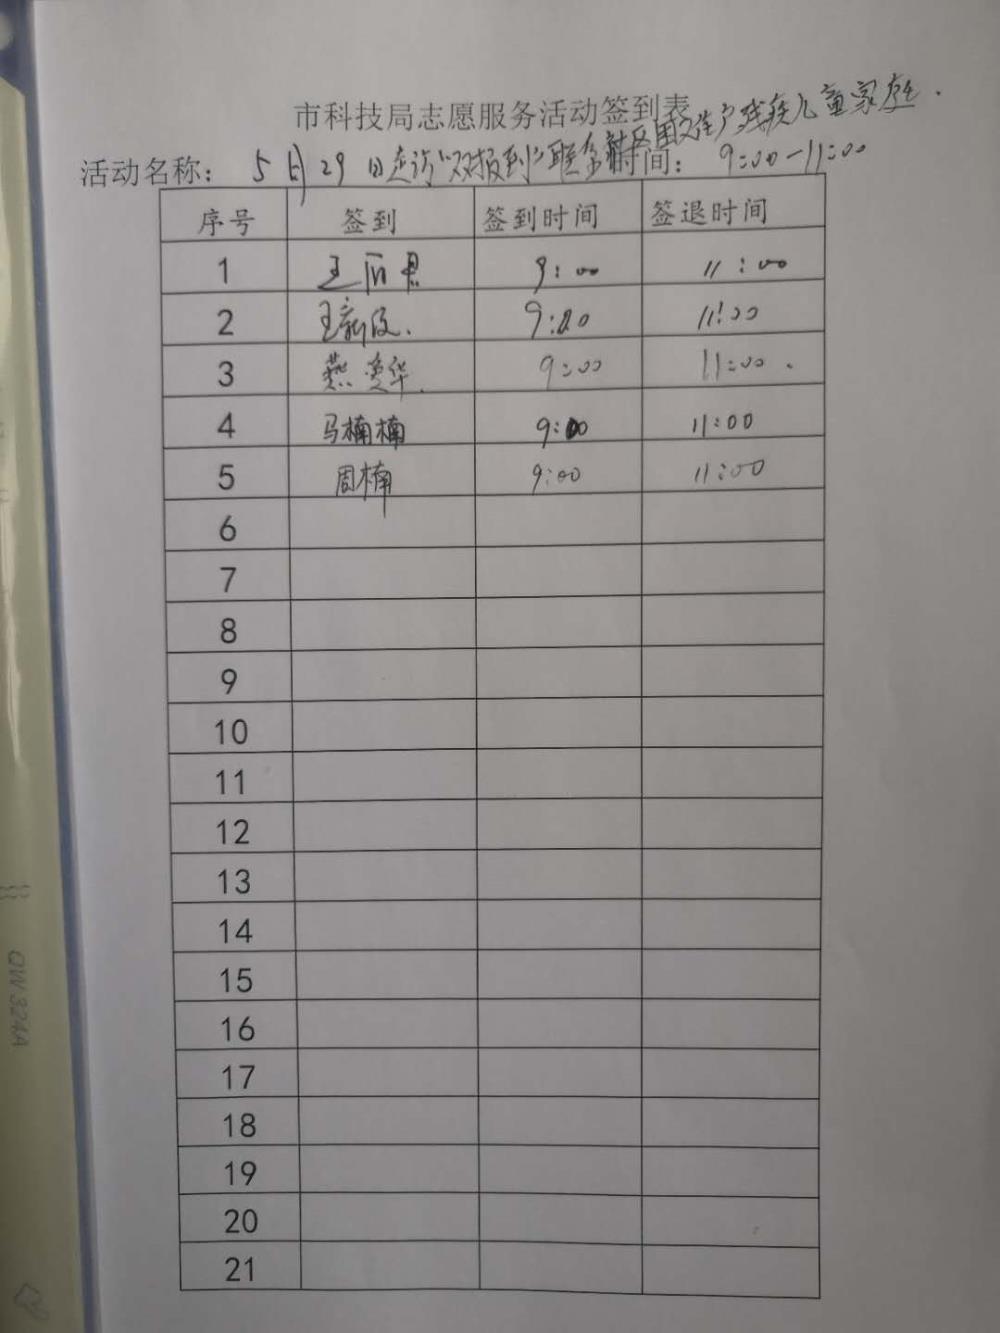 市科技局志愿服务活动签到表
活动名称： 5月29日走访“双报到”联系社区困难住户残疾儿童家庭. 时间： 9:00-11:00
序号 签到 签到时间 签退时间
1 王 9:00 11:00
2 王新 9:00 11:00
3 燕 华 9:00 11:00.
4 马楠楠 9:00 11:00
5 周楠 9:00 11:00
6
7
8
9
10
11
12
13
14
15
16
17
18
19
20
21
QW324A